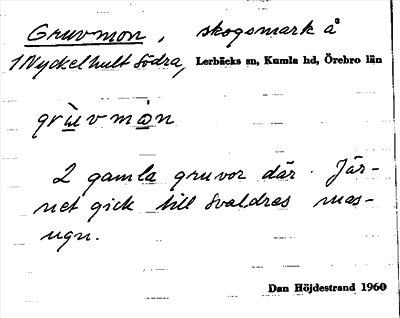 Gruvmon, skogsmark å
1 Nyckelhult Södra, Lerbäcks sn, Kumla hd, Örebro län
grùvmón
2 gamla gruvor där. Jär-
net gick till Svaldres mas-
ugn.
Dan Höjdestrand 1960